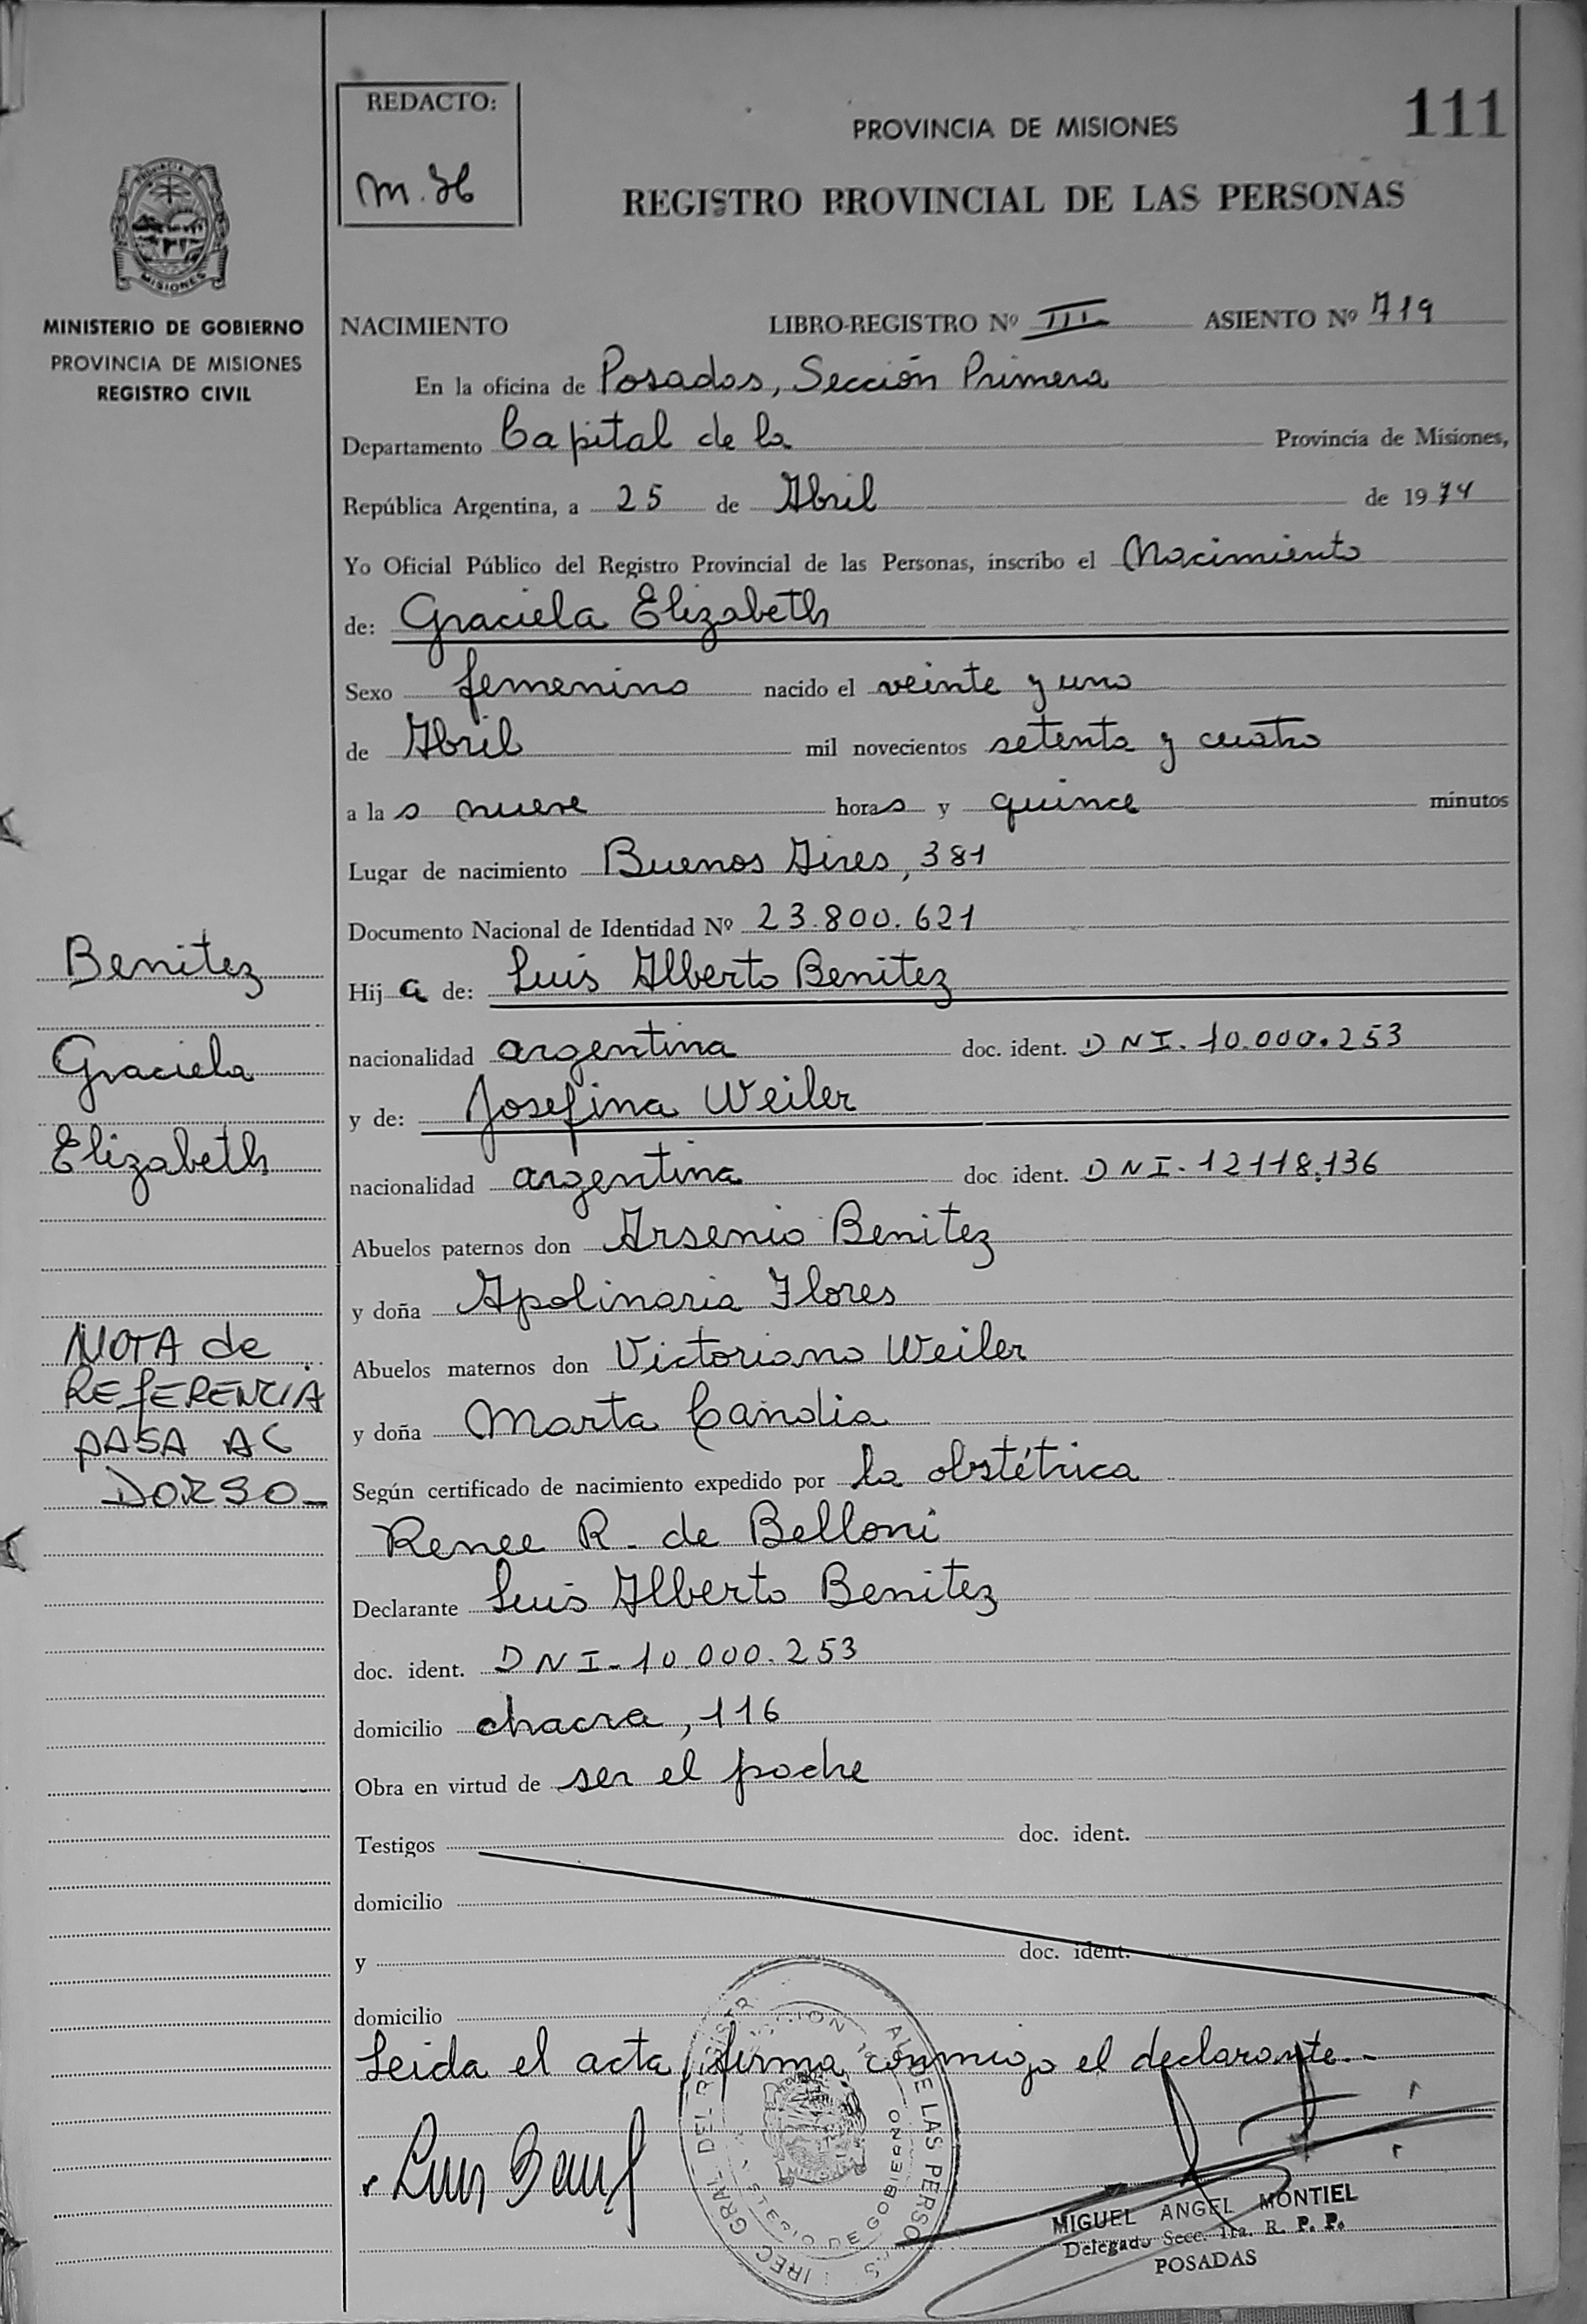 REDACTO:
M. H
PROVINCIA DE MISIONES
111
REGISTRO PROVINCIAL DE LAS PERSONAS
MISIONES
MINISTERIO DE GOBIERNO
PROVINCIA DE MISIONES
REGISTRO CIVIL
NACIMIENTO LIBRO-REGISTRO Nº III ASIENTO Nº 719
En la oficina de Posadas, Sección Primera
Departamento Capital de la Provincia de Misiones,
República Argentina, a 25 de Abril de 1974
Yo Oficial Público del Registro Provincial de las Personas, inscribo el Nacimiento
de: Graciela Elizabeth
Sexo femenino nacido el veinte y uno
de Abril mil novecientos setenta y cuatro
a las nueve horas y quince minutos
Lugar de nacimiento Buenos Aires, 381
Documento Nacional de Identidad Nº 23.800.621
Hija de: Luis Alberto Benitez
nacionalidad argentina doc. ident. DNI. 10.000.253
y de: Josefina Weiler
nacionalidad argentina doc ident. DNI. 12118.136
Abuelos paternos don Arsenio Benitez
y doña Apolinaria Flores
Abuelos maternos don Victoriano Weiler
y doña Marta Candia
Según certificado de nacimiento expedido por la obstétrica
Renee R. de Belloni
Declarante Luis Alberto Benitez
doc. ident. DNI-10.000.253
domicilio chacra, 116
Obra en virtud de ser el padre
Testigos doc. ident.
domicilio
y doc. ident.
domicilio
Leida el acta, firma conmigo el declarante.-
Benitez
Graciela
Elizabeth
NOTA de
REFERENCIA
PASA AL
DORSO-
MIGUEL ANGEL MONTIEL
Delegado Secc. 1ra. R. P. P.
POSADAS